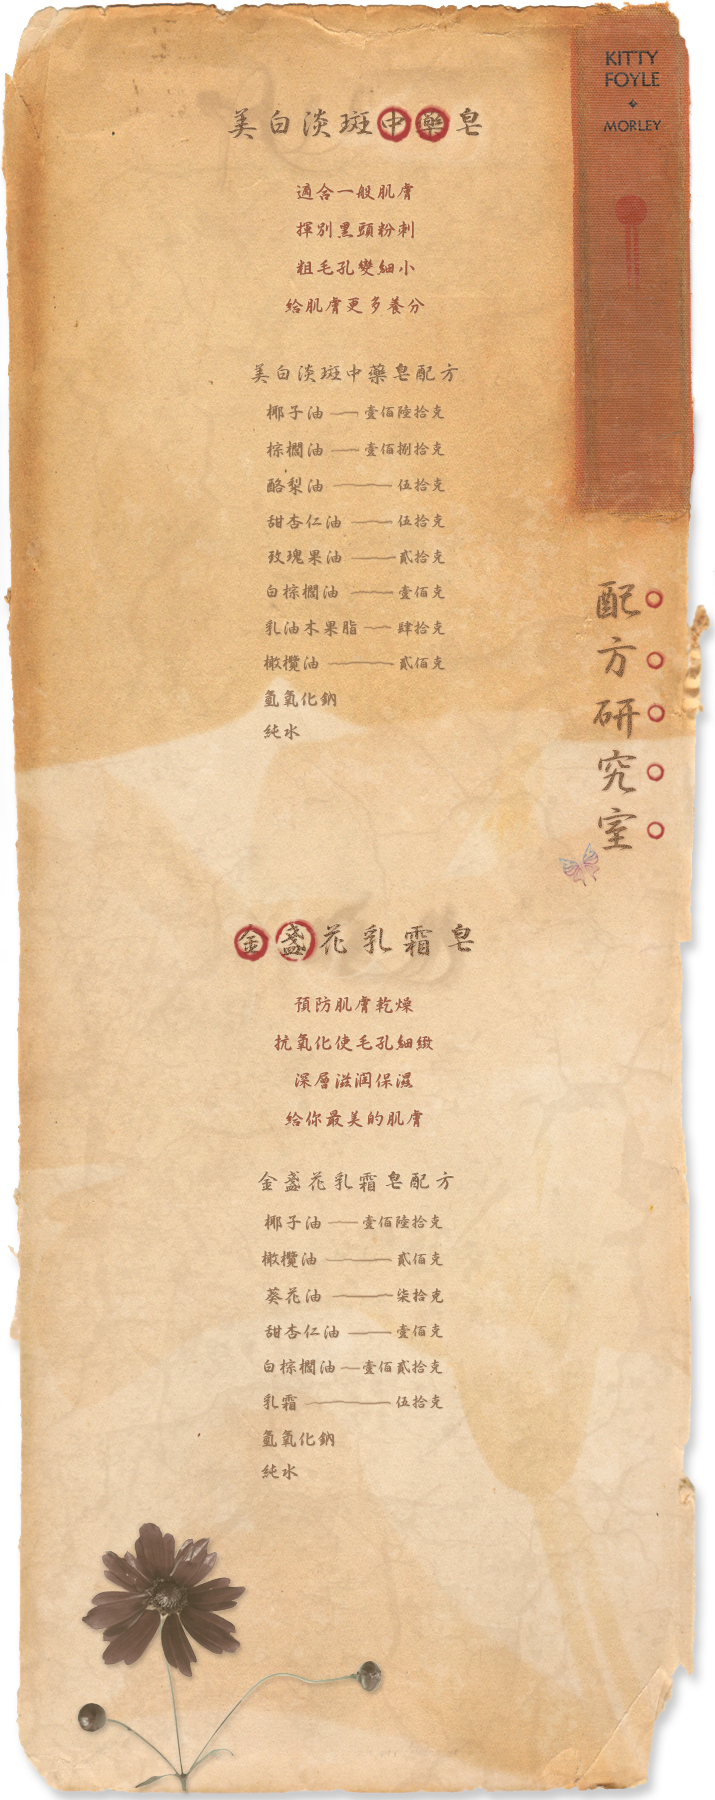 KITTY
FOYLE
MORLEY
美白淡斑中藥皂
適合一般肌膚
揮別黑頭粉刺
粗毛孔變細小
給肌膚更多養分
美白淡斑中藥皂配方
椰子油 壹佰陸拾克
棕櫚油 壹佰捌拾克
酪梨油 伍拾克
甜杏仁油 伍拾克
玫瑰果油 貳拾克
白棕櫚油 壹佰克
乳油木果脂 肆拾克
橄欖油 貳佰克
氫氧化鈉
純水
配方研究室
金盞花乳霜皂
預防肌膚乾燥
抗氧化使毛孔細緻
深層滋润保濕
給你最美的肌膚
金盞花乳霜皂配方
椰子油 壹佰陸拾克
橄欖油 貳佰克
葵花油 柒拾克
甜杏仁油 壹佰克
白棕櫚油 壹佰貳拾克
乳霜 伍拾克
氫氧化鈉
純水